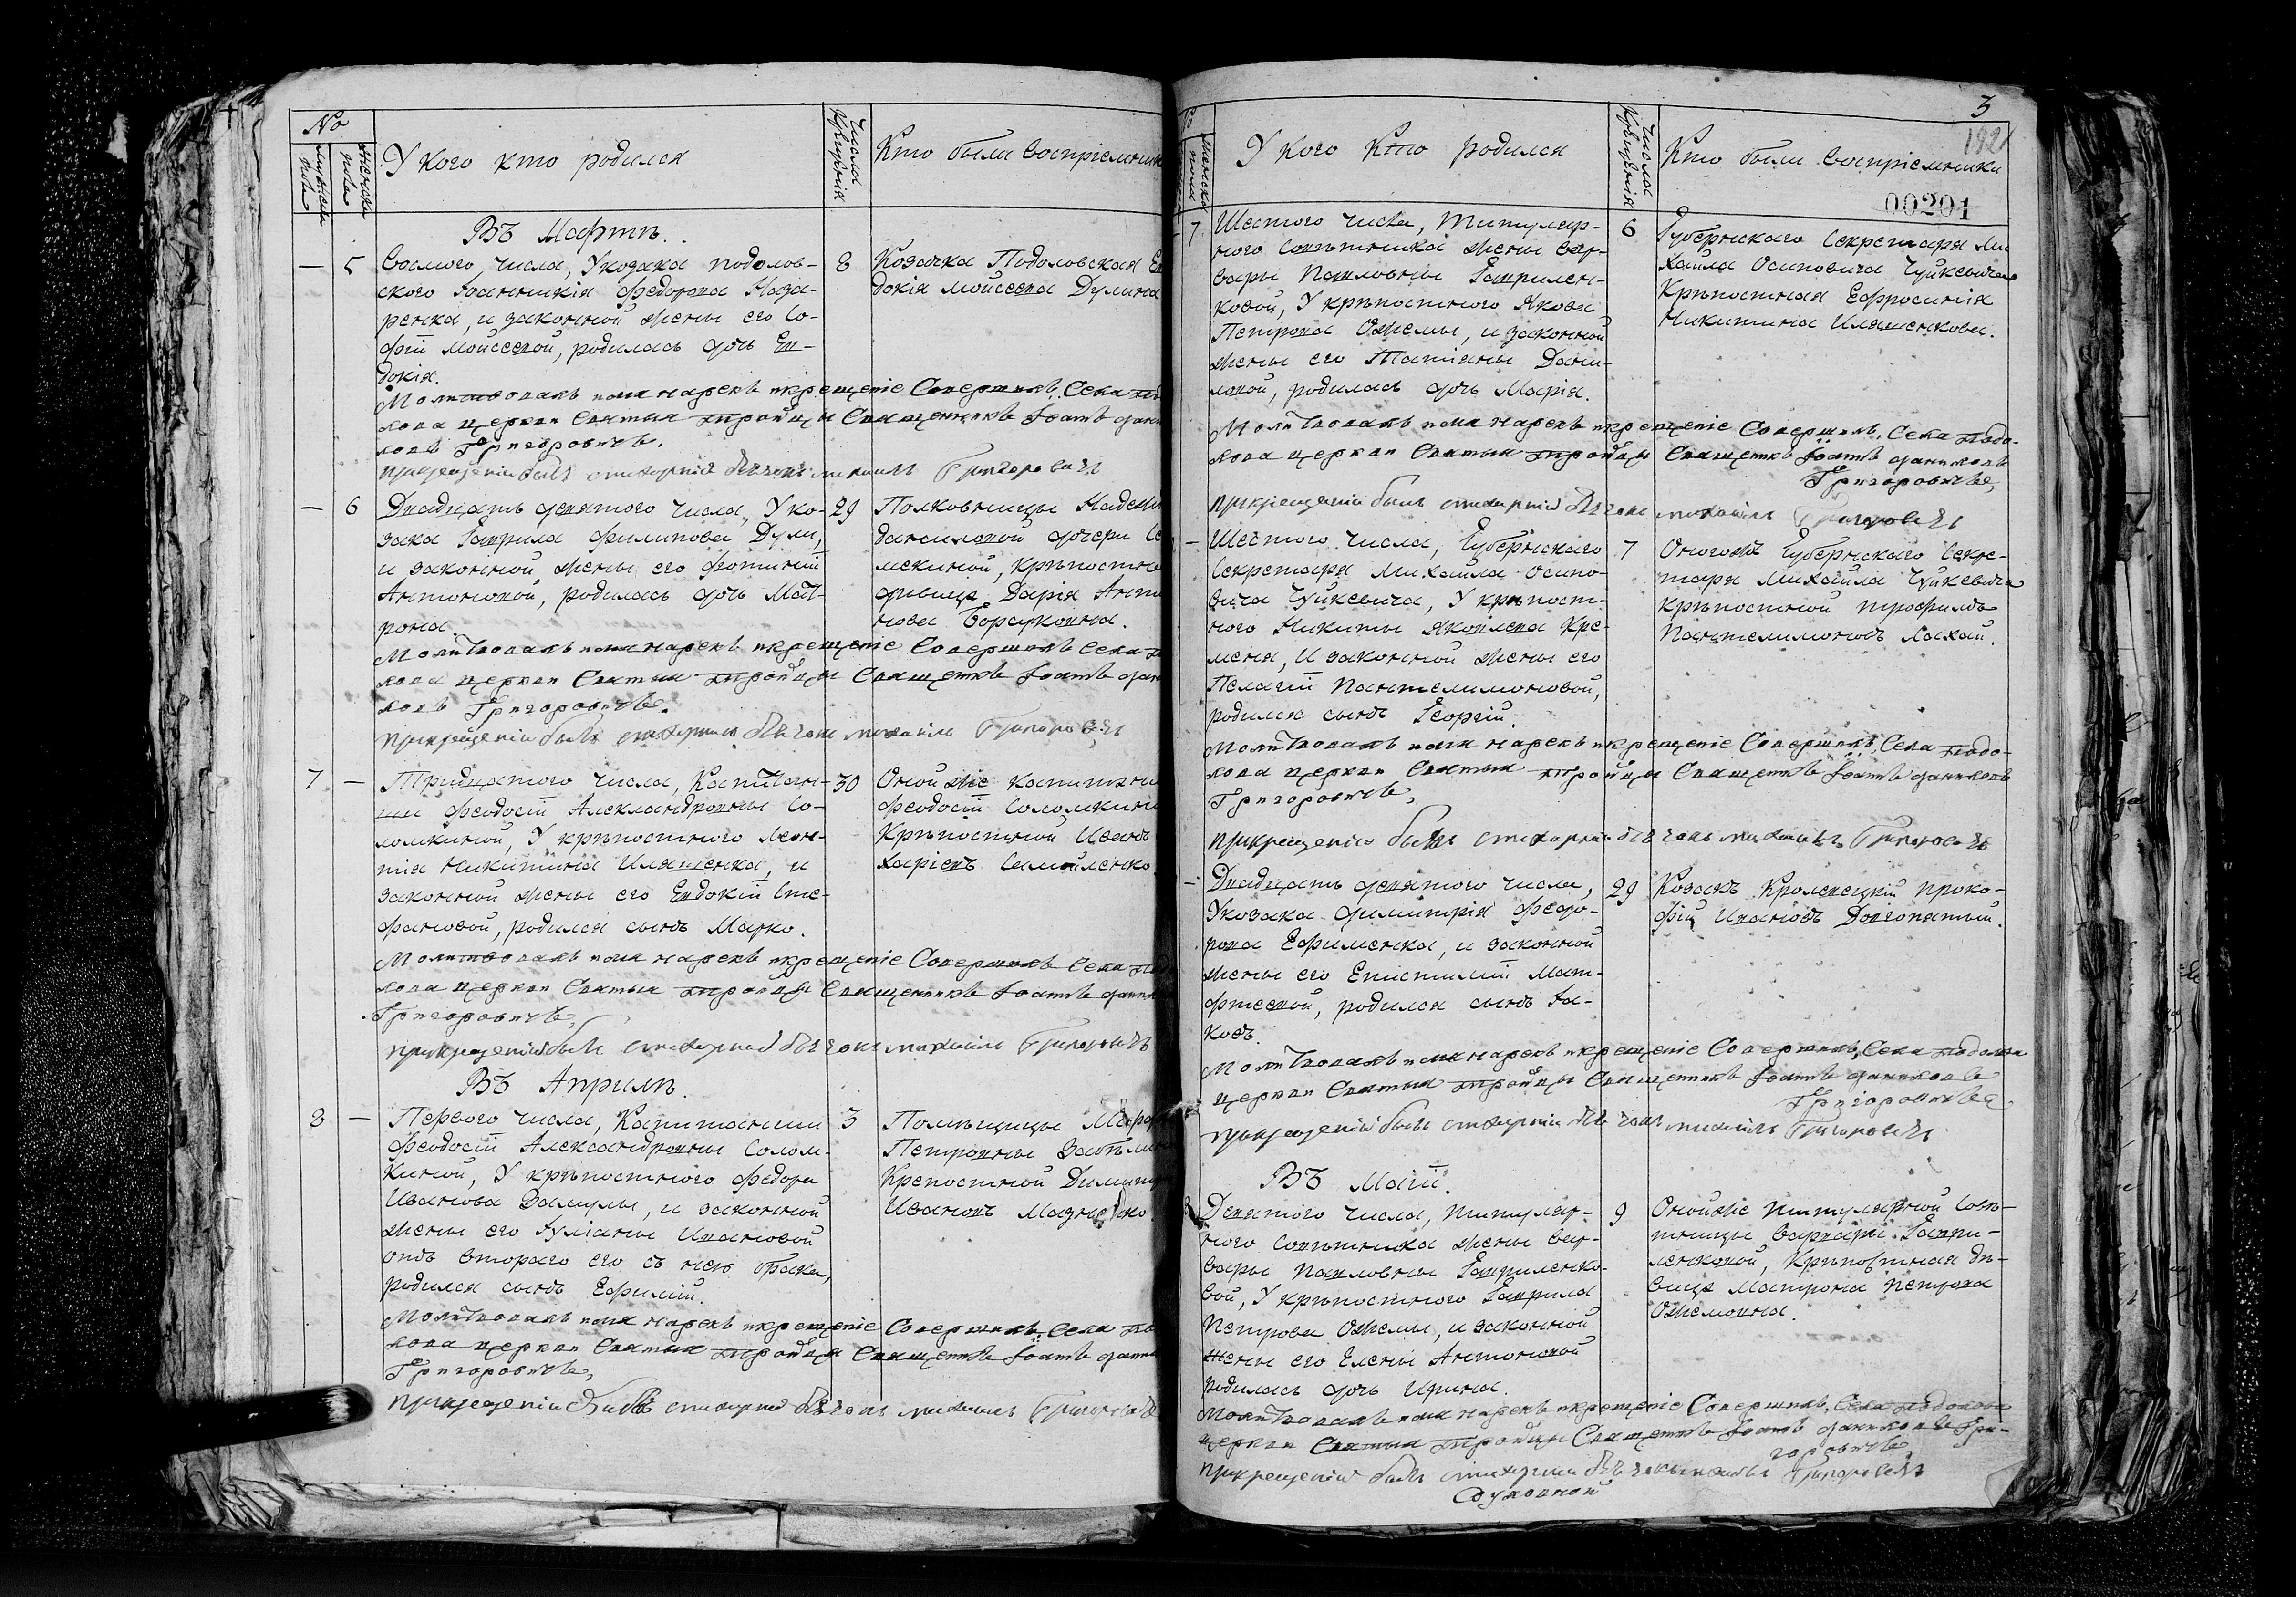 No
мужеска пола
женска пола
У кого кто родился
Числа Крещенія
Кто были воспріемники
Въ Мартѣ.
— 5 Восмого числа, У козака подолов-
ского Іоанникія Федорова Наза-
ренка, и законной жены его Со-
фіи Мойсеевой, родилась дочь Ев-
докія.
8 Козачка Подоловская Ев
докія Мойсеева Дулина
Молитвовалъ имя нарекъ и крещеніе Совершилъ, Села по
лова церкви Святыя тройцы Священникъ Іоаннъ дани
ловъ Григоровичъ.
при крещеніи былъ стихарній дьячокъ михаилъ Григоровичъ
— 6 Двадцать девятого числа, У ко-
зака Гаврила Филипова Дули,
и законной жены его Фотиніи
Антоновой, родилась дочь Мат-
рона.
29 Полковницы Надеж
даниловой дочери Се
мекиной, крѣпостна
дѣвица Дарія Анто
нова Борсуковна.
Молитвовалъ имя нарекъ и крещеніе Совершилъ Села по
лова церкви Святыя тройцы Священникъ Іоаннъ дани
ловъ Григоровичъ.
при крещеніи былъ стихарній дьячокъ михаилъ Григоровичъ
7 — Тридцатого числа, Капитан-
ши Феодосіи Алекландровны Со-
ломкиной, У крѣпостного Леон-
тія Никитина Иляшенка, и
законной жены его Евдокіи Сте-
фановой, родился сынъ Марко.
30 Оной же капитан
Феодосіи Соломкин
Крѣпостной Иванъ
Харіевъ Самойленко
Молитвовалъ имя нарекъ и крещеніе Совершилъ Села по
лова церкви Святыя тройцы Священникъ Іоаннъ дани
Григоровичъ,
при крещеніи былъ стихарній дьячокъ михаилъ Григоровичъ
Въ Априлѣ.
8 — Первого числа, Капитанши
Феодосіи Александровны Солом-
киной, У крѣпостного Федора
Иванова Замулы, и законной
жены его Іуліаны Ивановой
отъ второго его съ нею брака,
родился сынъ Ефимій.
3 Помѣщицы Марф
Петровны
Крепостной Димит
Ивановъ
Молитвовалъ имя нарекъ и крещеніе Совершилъ, Села по
лова церкви Святыя тройцы Священникъ Іоаннъ дани
Григоровичъ,
при крещеніи былъ стихарній дьячокъ михаилъ Григоровичъ
3
192
00201
женска пола
У кого Кто родился
Числа Крещенія
Кто были воспріемники
7 Шестого числа, Титуляр-
ного Совѣтника жены Вар-
вары Павловны Гавриленк-
ковой, У крѣпостного Якова
Петрова Ожемы, и законной
жены его Татіяны Дани-
ловой, родилась дочь Марія.
6 Губернскаго Секретаря Ми
хайла Осиповича Чуйкевича
Крѣпостная Ефросинія
Никитина Иляшенкова.
Молитвовалъ имя нарекъ и крещеніе Совершилъ, Села Подо-
лова церкви Святыя тройцы Священникъ Іоаннъ даниловъ
Григоровичъ,
при крещеніи былъ стихарній дьячокъ михаилъ Григоровичъ
— Шестого числа, Губернского
Секретаря Михайла Осипо-
вича Чуйкевича, У крѣпост-
ного Никиты Яковлева Кре-
меня, и законной жены его
Пелагіи Пантелимоновой,
родился сынъ Георгій.
7 Оногожъ Губернскаго Секре-
таря Михайла Чуйкевича
крѣпостной трофимъ
Пантелимоновъ Лахай.
Молитвовалъ имя нарекъ и крещеніе Совершилъ, Села Подо-
лова церкви Святыя тройцы Священникъ Іоаннъ даниловъ
Григоровичъ,
при крещеніи былъ стихарній дьячокъ михаилъ Григоровичъ
— Двадцать девятого числа,
У козака димитрія Федо-
рова Ефименка, и законной
жены его Епистиміи Мат-
фтеевой, родился сынъ Іа-
ковъ.
29 Козакъ Кролевецкій Проко-
фій Ивановъ Долгопятый.
Молитвовалъ имя нарекъ и крещеніе Совершилъ, Села Подолова
церкви Святыя тройцы Священникъ Іоаннъ даниловъ
Григоровичъ,
при крещеніи былъ стихарній дьячокъ михаилъ Григоровичъ
Въ Маіи.
8 Девятого числа, титуляр-
ного Совѣтника жены Вар-
вары Павловны Гавриленко-
вой, У крѣпостного Гаврила
Петрова Ожемы, и законной
жены его Елены Антоновой
родилась дочь Ирина.
9 Оной же титулярной Совѣ-
тницы Варвары Гаври-
ленковой, Крѣпостная дѣ-
вица Матрона Петрова
Ожемовна.
Молитвовалъ имя нарекъ и крещеніе Совершилъ, Села Подолова
церкви Святыя тройцы Священникъ Іоаннъ даниловъ Гри-
горовичъ,
при крещеніи былъ стихарній дьячокъ михаилъ Григоровичъ
Духовной